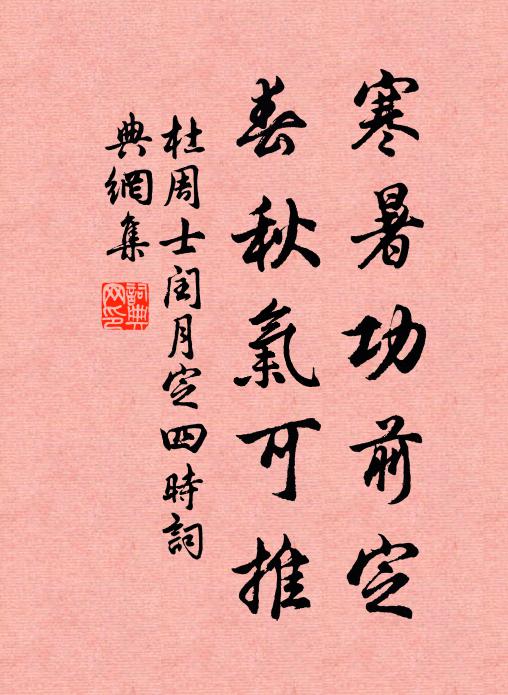 寒暑功前定
春秋氣可推
杜周士閏月定四時詞
典網集
詞典网印